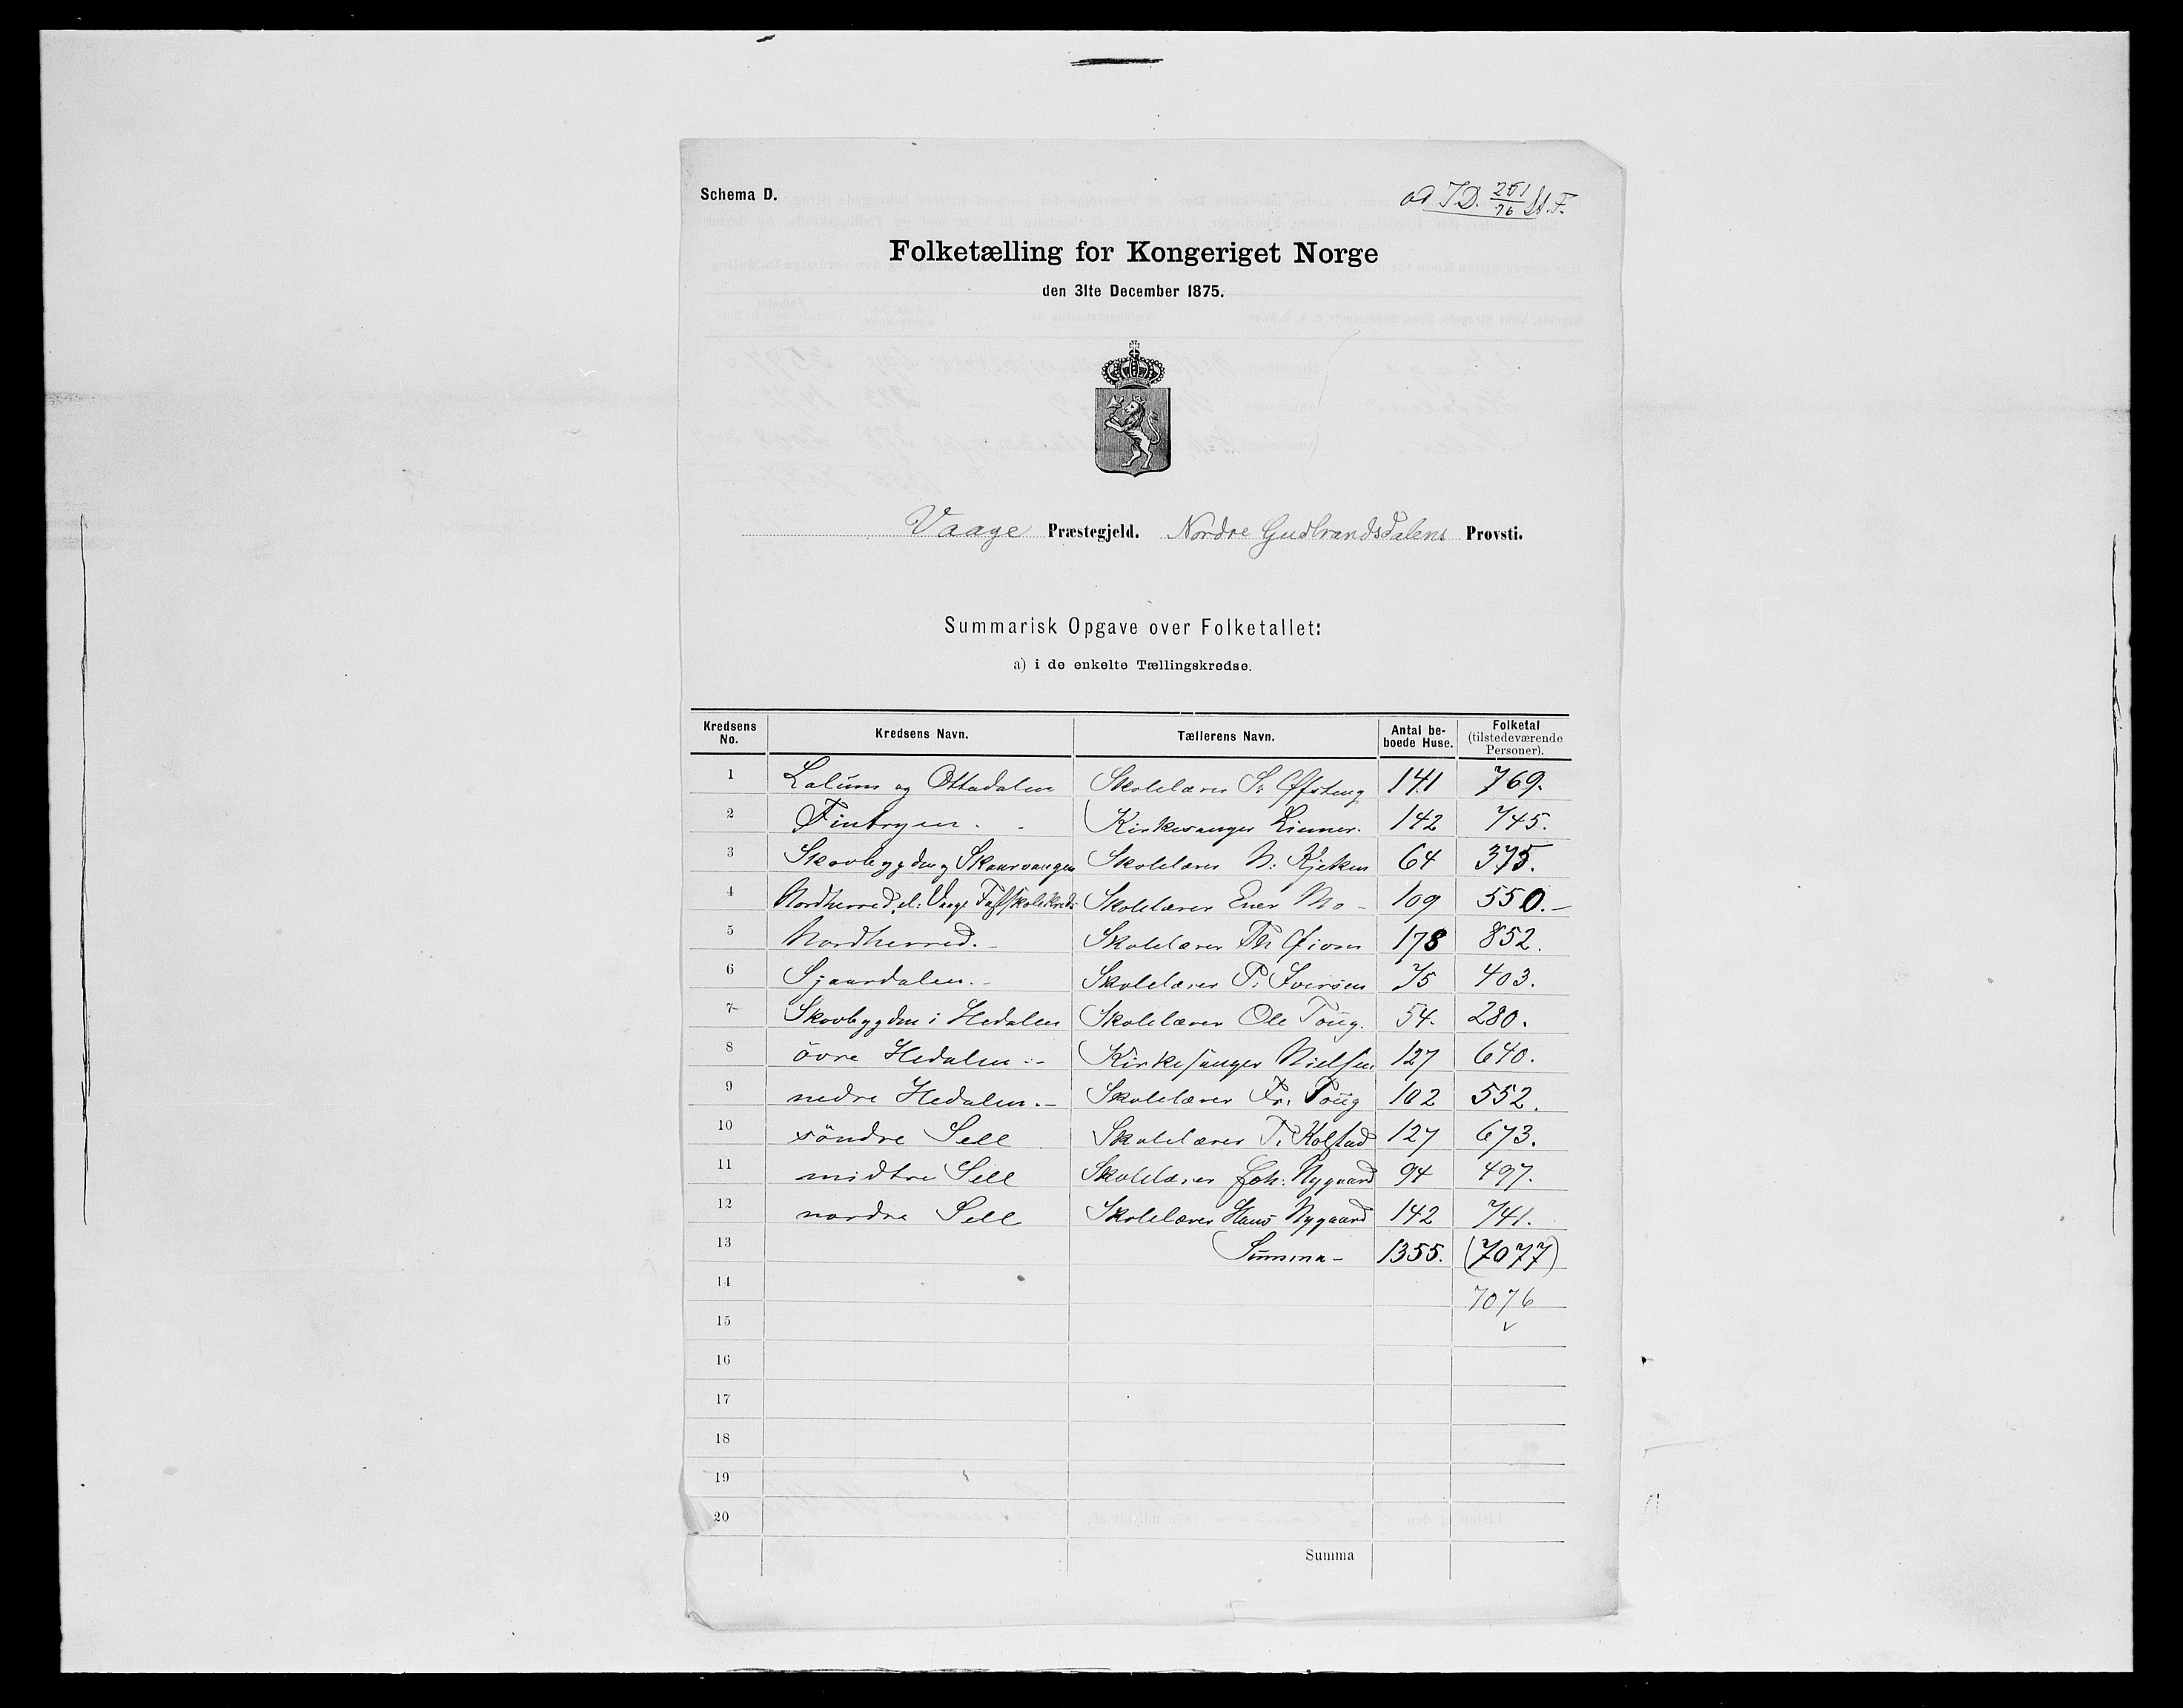 Schema D.
ad J.D. 251/76 St. F.
Folketælling for Kongeriget Norge
den 31te December 1875.
Vaage Præstegjeld. Nordre Gudbrandsdalens Provsti.
Summarisk Opgave over Folketallet:
a) i de enkelte Tællingskredse.
Kredsens No. Kredsens Navn. Tællerens Navn. Antal beboede Huse. Folketal (tilstedeværende Personer).
1 Lalüms og Ottadalen Skolelærer S. Øfsteng 141 769.
2 Findbryen. Kirkesanger Linner. 142 745.
3 Skovbygden og Skaarvangen Skolelærer N: Kjeken 64 375.
4 Nordherred, el: Vaage Fastskolekreds Skolelærer Ener Mo - 109 550.-
5 Nordherred.- Skolelærer Th Øiom 178 852.
6 Sjaardalen.- Skolelærer P. Iversen 75 403.
7 Skovbygden i Hedalen Skolelærer Ole Toüg. 54. 280.
8 övre Hedalen.- Kirkesanger Nielsen 127 640.
9 nedre Hedalen.- Skolelærer Fr. Toüg 102 552.
10 söndre Sell Skolelærer T. Kolstad 127 673.
11 midtre Sell Skolelærer Joh: Nygaard 94 497.
12 nordre Sell Skolelærer Hans Nygaard 142 741.
13 Summa - 1355. (7077)
14 7076
15
16
17
18
19
20
Summa